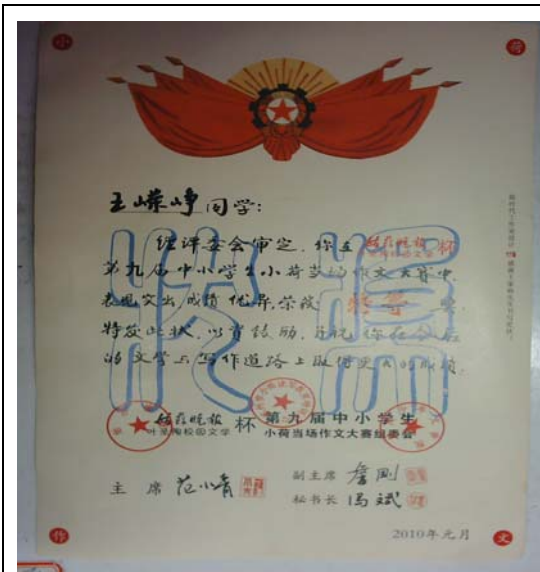 小
荷
王嵘峥同学:
经评委会审定,你在姑苏晚报杯
第九届中小学生小荷当场作文大赛中,
表现突出,成绩优异,荣获 奖,
特发此状,以资鼓励,并祝你在今后
的文学与写作道路上取得更大的成绩。
姑苏晚报
叶圣陶校园文学
杯
第九届中小学生
小荷当场作文大赛组委会
主 席 范小青
副主席 詹刚
秘书长 冯斌
2010年元月
作
文